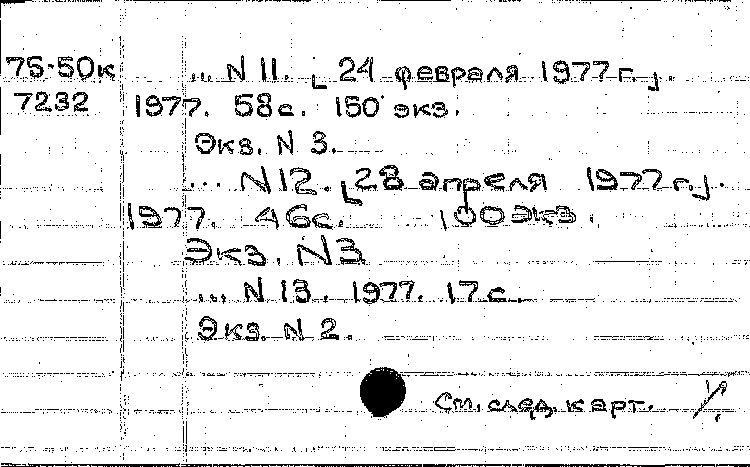 75-50к ... N 11. [24 февраля 1977 г.].
7232 1977. 58 с. 150 экз.
Экз. N 3.
... N 12. [28 апреля 1977 г.].
1977. 46 с. 100 экз.
Экз. N 3
... N 13. 1977. 17 с.
Экз. N 2.
См. след. карт.